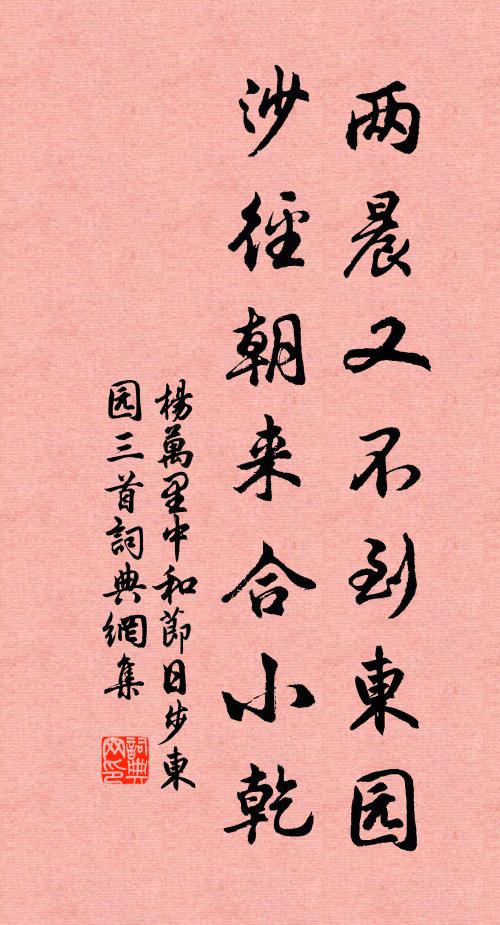 两晨又不到東园
沙徑朝来合小乾
楊萬里中和節日步東
园三首詞典網集
詞典
网印